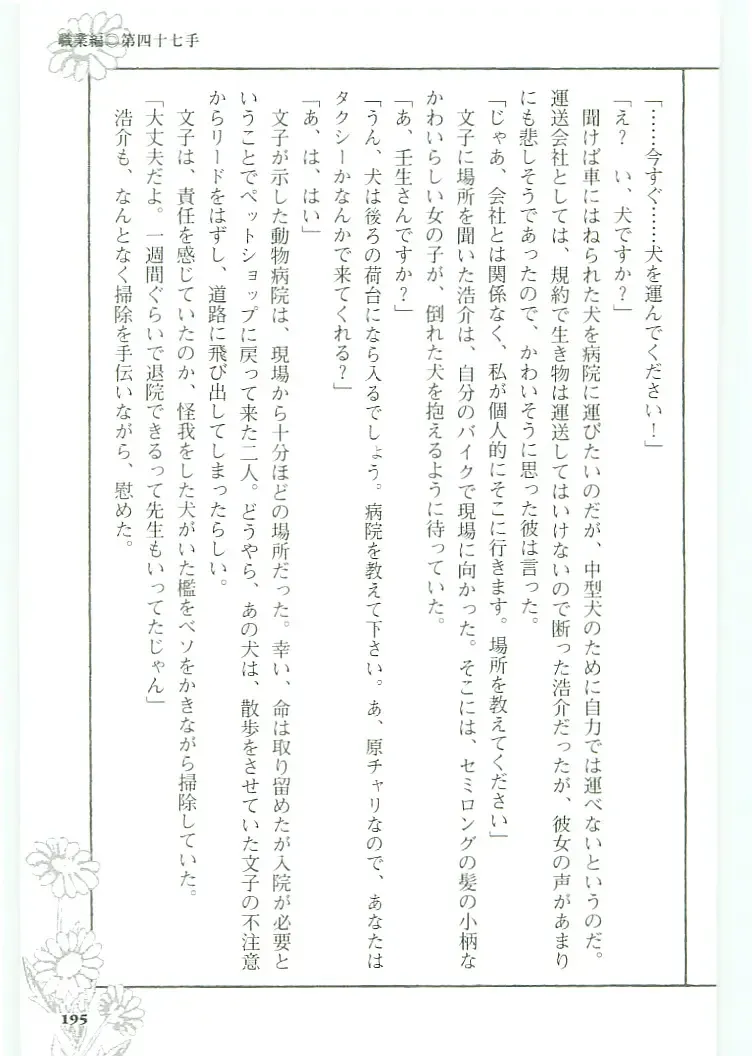 職業編◎第四十七手
「……今すぐ……犬を運んでください！」
「え？　い、犬ですか？」
　聞けば車にはねられた犬を病院に運びたいのだが、中型犬のために自力では運べないというのだ。
運送会社としては、規約で生き物は運送してはいけないので断った浩介だったが、彼女の声があまり
にも悲しそうであったので、かわいそうに思った彼は言った。
「じゃあ、会社とは関係なく、私が個人的にそこに行きます。場所を教えてください」
　文子に場所を聞いた浩介は、自分のバイクで現場に向かった。そこには、セミロングの髪の小柄な
かわいらしい女の子が、倒れた犬を抱えるように待っていた。
「あ、壬生さんですか？」
「うん、犬は後ろの荷台になら入るでしょう。病院を教えて下さい。あ、原チャリなので、あなたは
タクシーかなんかで来てくれる？」
「あ、は、はい」
　文子が示した動物病院は、現場から十分ほどの場所だった。幸い、命は取り留めたが入院が必要と
いうことでペットショップに戻って来た二人。どうやら、あの犬は、散歩をさせていた文子の不注意
からリードをはずし、道路に飛び出してしまったらしい。
　文子は、責任を感じていたのか、怪我をした犬がいた檻をベソをかきながら掃除していた。
「大丈夫だよ。一週間ぐらいで退院できるって先生もいってたじゃん」
　浩介も、なんとなく掃除を手伝いながら、慰めた。
195